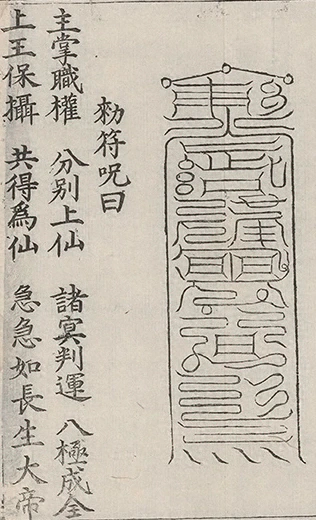 勑符呪曰
主掌職權　分别上仙　諸冥判運　八極成全
上王保攝　共得為仙　急急如長生大帝